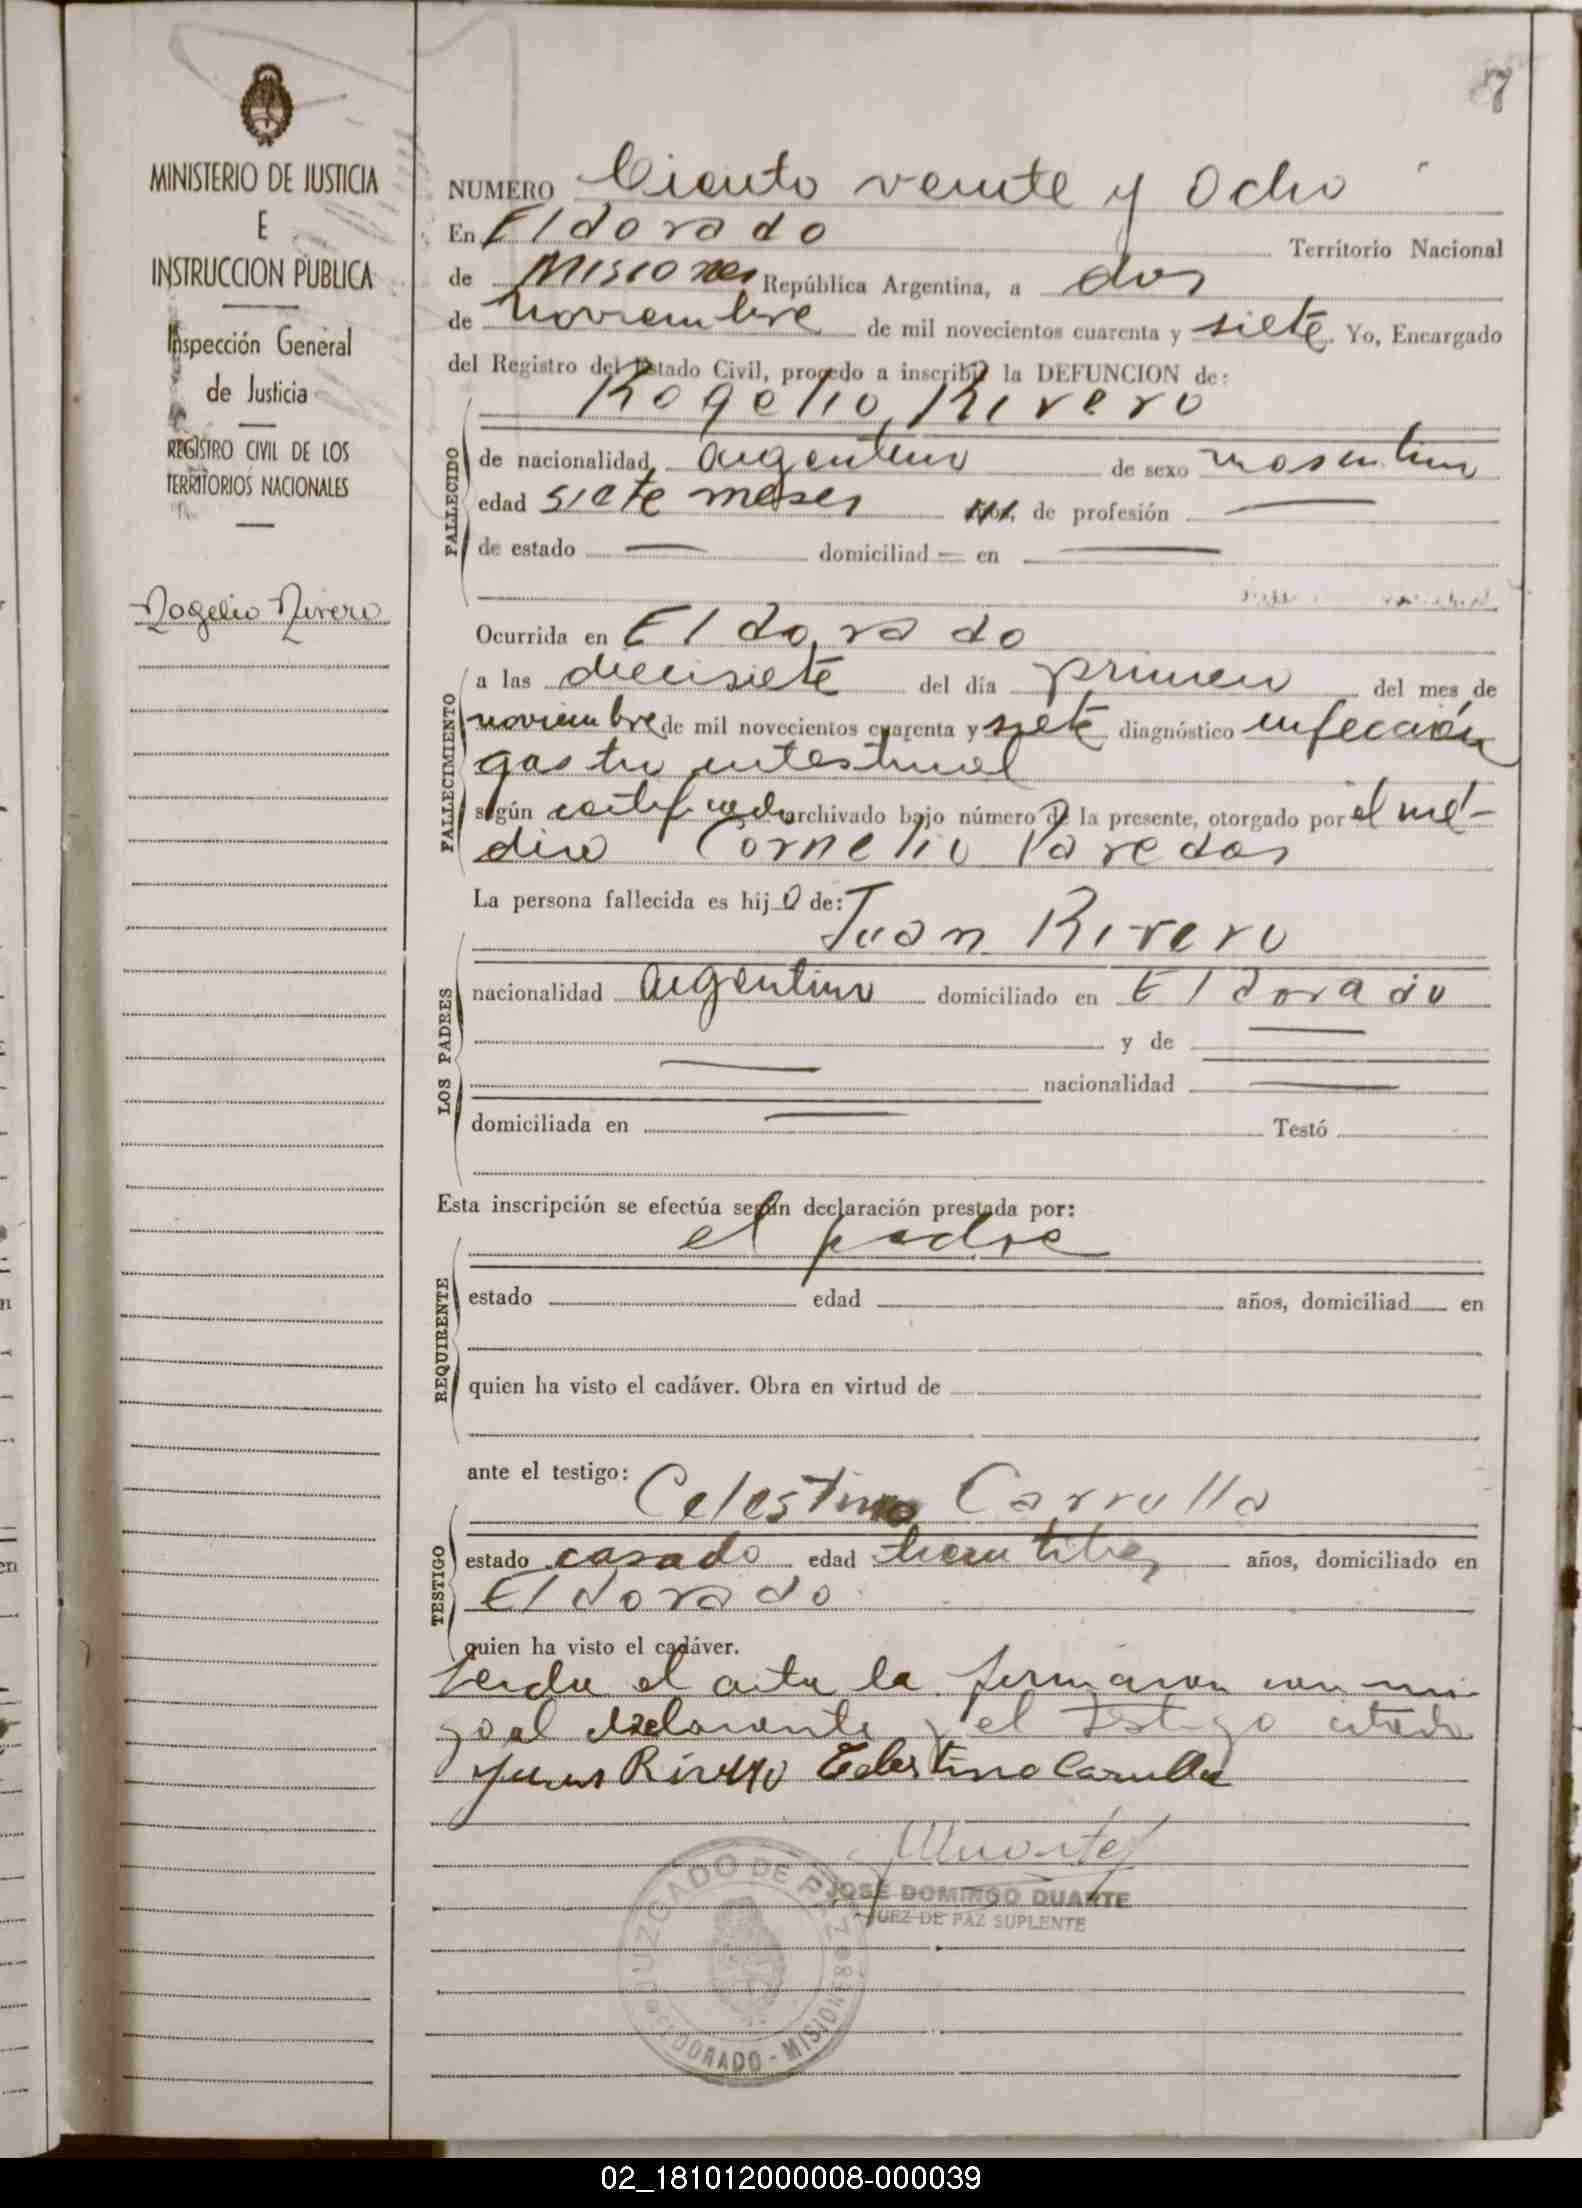 MINISTERIO DE JUSTICIA
E
INSTRUCCION PUBLICA
Inspección General
de Justicia
REGISTRO CIVIL DE LOS
TERRITORIOS NACIONALES
Rogelio Rivero
NUMERO Ciento veinte y Ocho
En Eldorado Territorio Nacional
de Misiones República Argentina, a dos
de noviembre de mil novecientos cuarenta y siete. Yo, Encargado
del Registro del Estado Civil, procedo a inscribir la DEFUNCION de:
Rogelio Rivero
FALLECIDO
de nacionalidad argentino de sexo masculino
edad siete meses años, de profesión —
de estado — domiciliad — en —
Ocurrida en Eldorado
FALLECIMIENTO
a las diecisiete del día primero del mes de
noviembre de mil novecientos cuarenta y siete diagnóstico infección
gastro intestinal
según certificado archivado bajo número de la presente, otorgado por el mé-
dico Cornelio Paredes
La persona fallecida es hijo de:
Juan Rivero
LOS PADRES
nacionalidad argentino domiciliado en Eldorado
y de —
— nacionalidad —
domiciliada en — Testó
Esta inscripción se efectúa según declaración prestada por:
el padre
REQUIRENTE
estado edad años, domiciliad en
quien ha visto el cadáver. Obra en virtud de
ante el testigo:
Celestino Carrulla
TESTIGO
estado casado edad treintitres años, domiciliado en
Eldorado
quien ha visto el cadáver.
Leida el acta la firmaron conmi
go el declarante y el testigo citado
Juan Rivero Celestino Carulla
JOSE DOMINGO DUARTE
JUEZ DE PAZ SUPLENTE
JUZGADO DE PAZ
ELDORADO - MISIONES
02_181012000008-000039